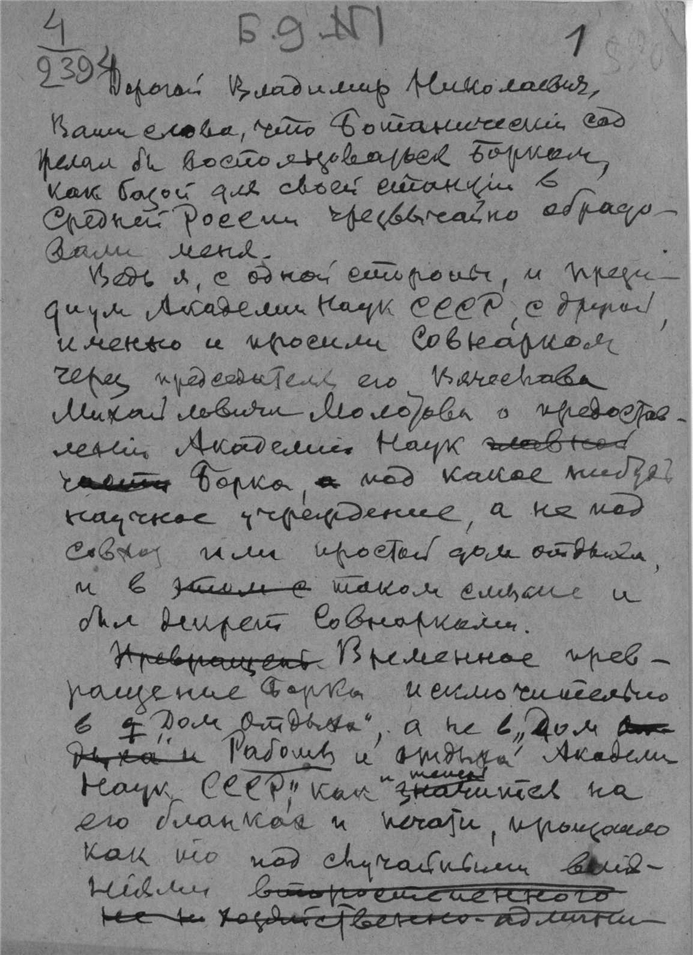 4
2394
Б.9.№1
1
Дорогой Владимир Николаевич,
Ваши слова, что Ботаническій сад
желал бы воспользоваться Борком,
как базой для своей станціи в
Средней России чрезвычайно обрадо-
вали меня.
Ведь я, с одной стороны, и прези-
диум Академии Наук СССР, с другой,
именно и просили Совнарком
через председателя его Вячеслава
Михайловича Молотова о предостав-
леніи Академии Наук главной
части Борка, а под какое нибудь
научное учреждение, а не под
совхоз или простой дом отдыха,
и в этом с таком смысле и
был декрет Совнаркома.
Превращени Временное прев-
ращение Борка исключительно
в "Дом отдыха", а не в "Дом от-
дыха и Работы и отдыха Академи
Наук СССР", как и теперь значится на
его бланках и печати, произошло
как то под случайными влія-
ніями второстепенного
не и хозяйственно-админи-